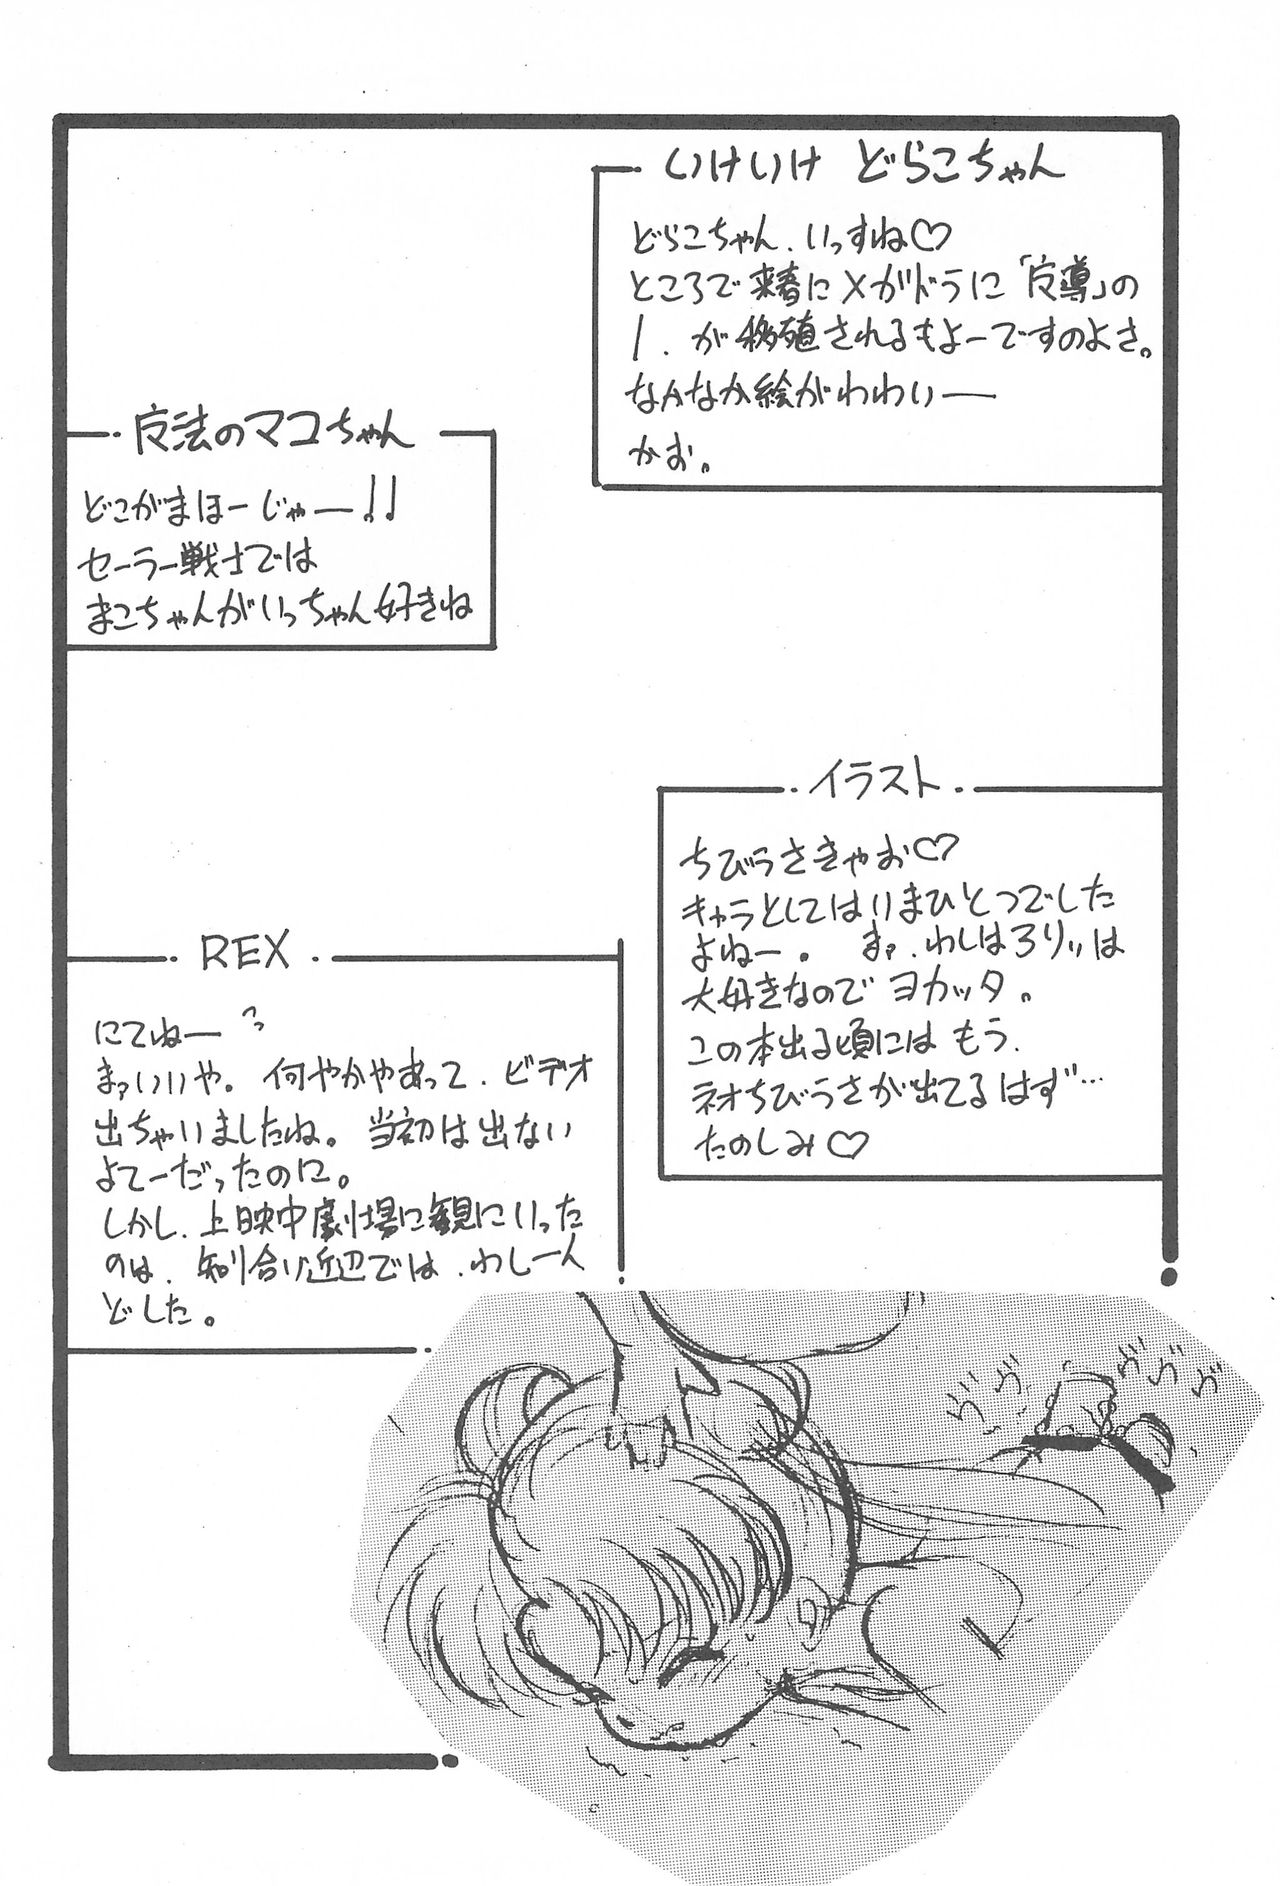 いけいけ どらこちゃん
どらこちゃん、いっすね♡
ところで来春にメガドラに「广導」の
1. が移殖されるもよーですのよさ。
なかなか絵がわわいー
かお。
广法のマコちゃん
どこがまほーじゃー!!
セーラー戦士では
まこちゃんがいっちゃん好きね
イラスト
ちびうさきゃお♡
キャラとしてはいまひとつでした
よねー。 まァ、わしはろりィは
大好きなので ヨカッタ。
この本出る頃には もう、
ネオちびうさが出てるはず…
たのしみ♡
REX
にてねーっ
まァいいや。何やかやあって、ビデオ
出ちゃいましたね。当初は出ない
よてーだったのに。
しかし、上映中劇場に観にいった
のは、知り合い近辺では、わし一人
どした。
ヴヴ ヴヴヴ